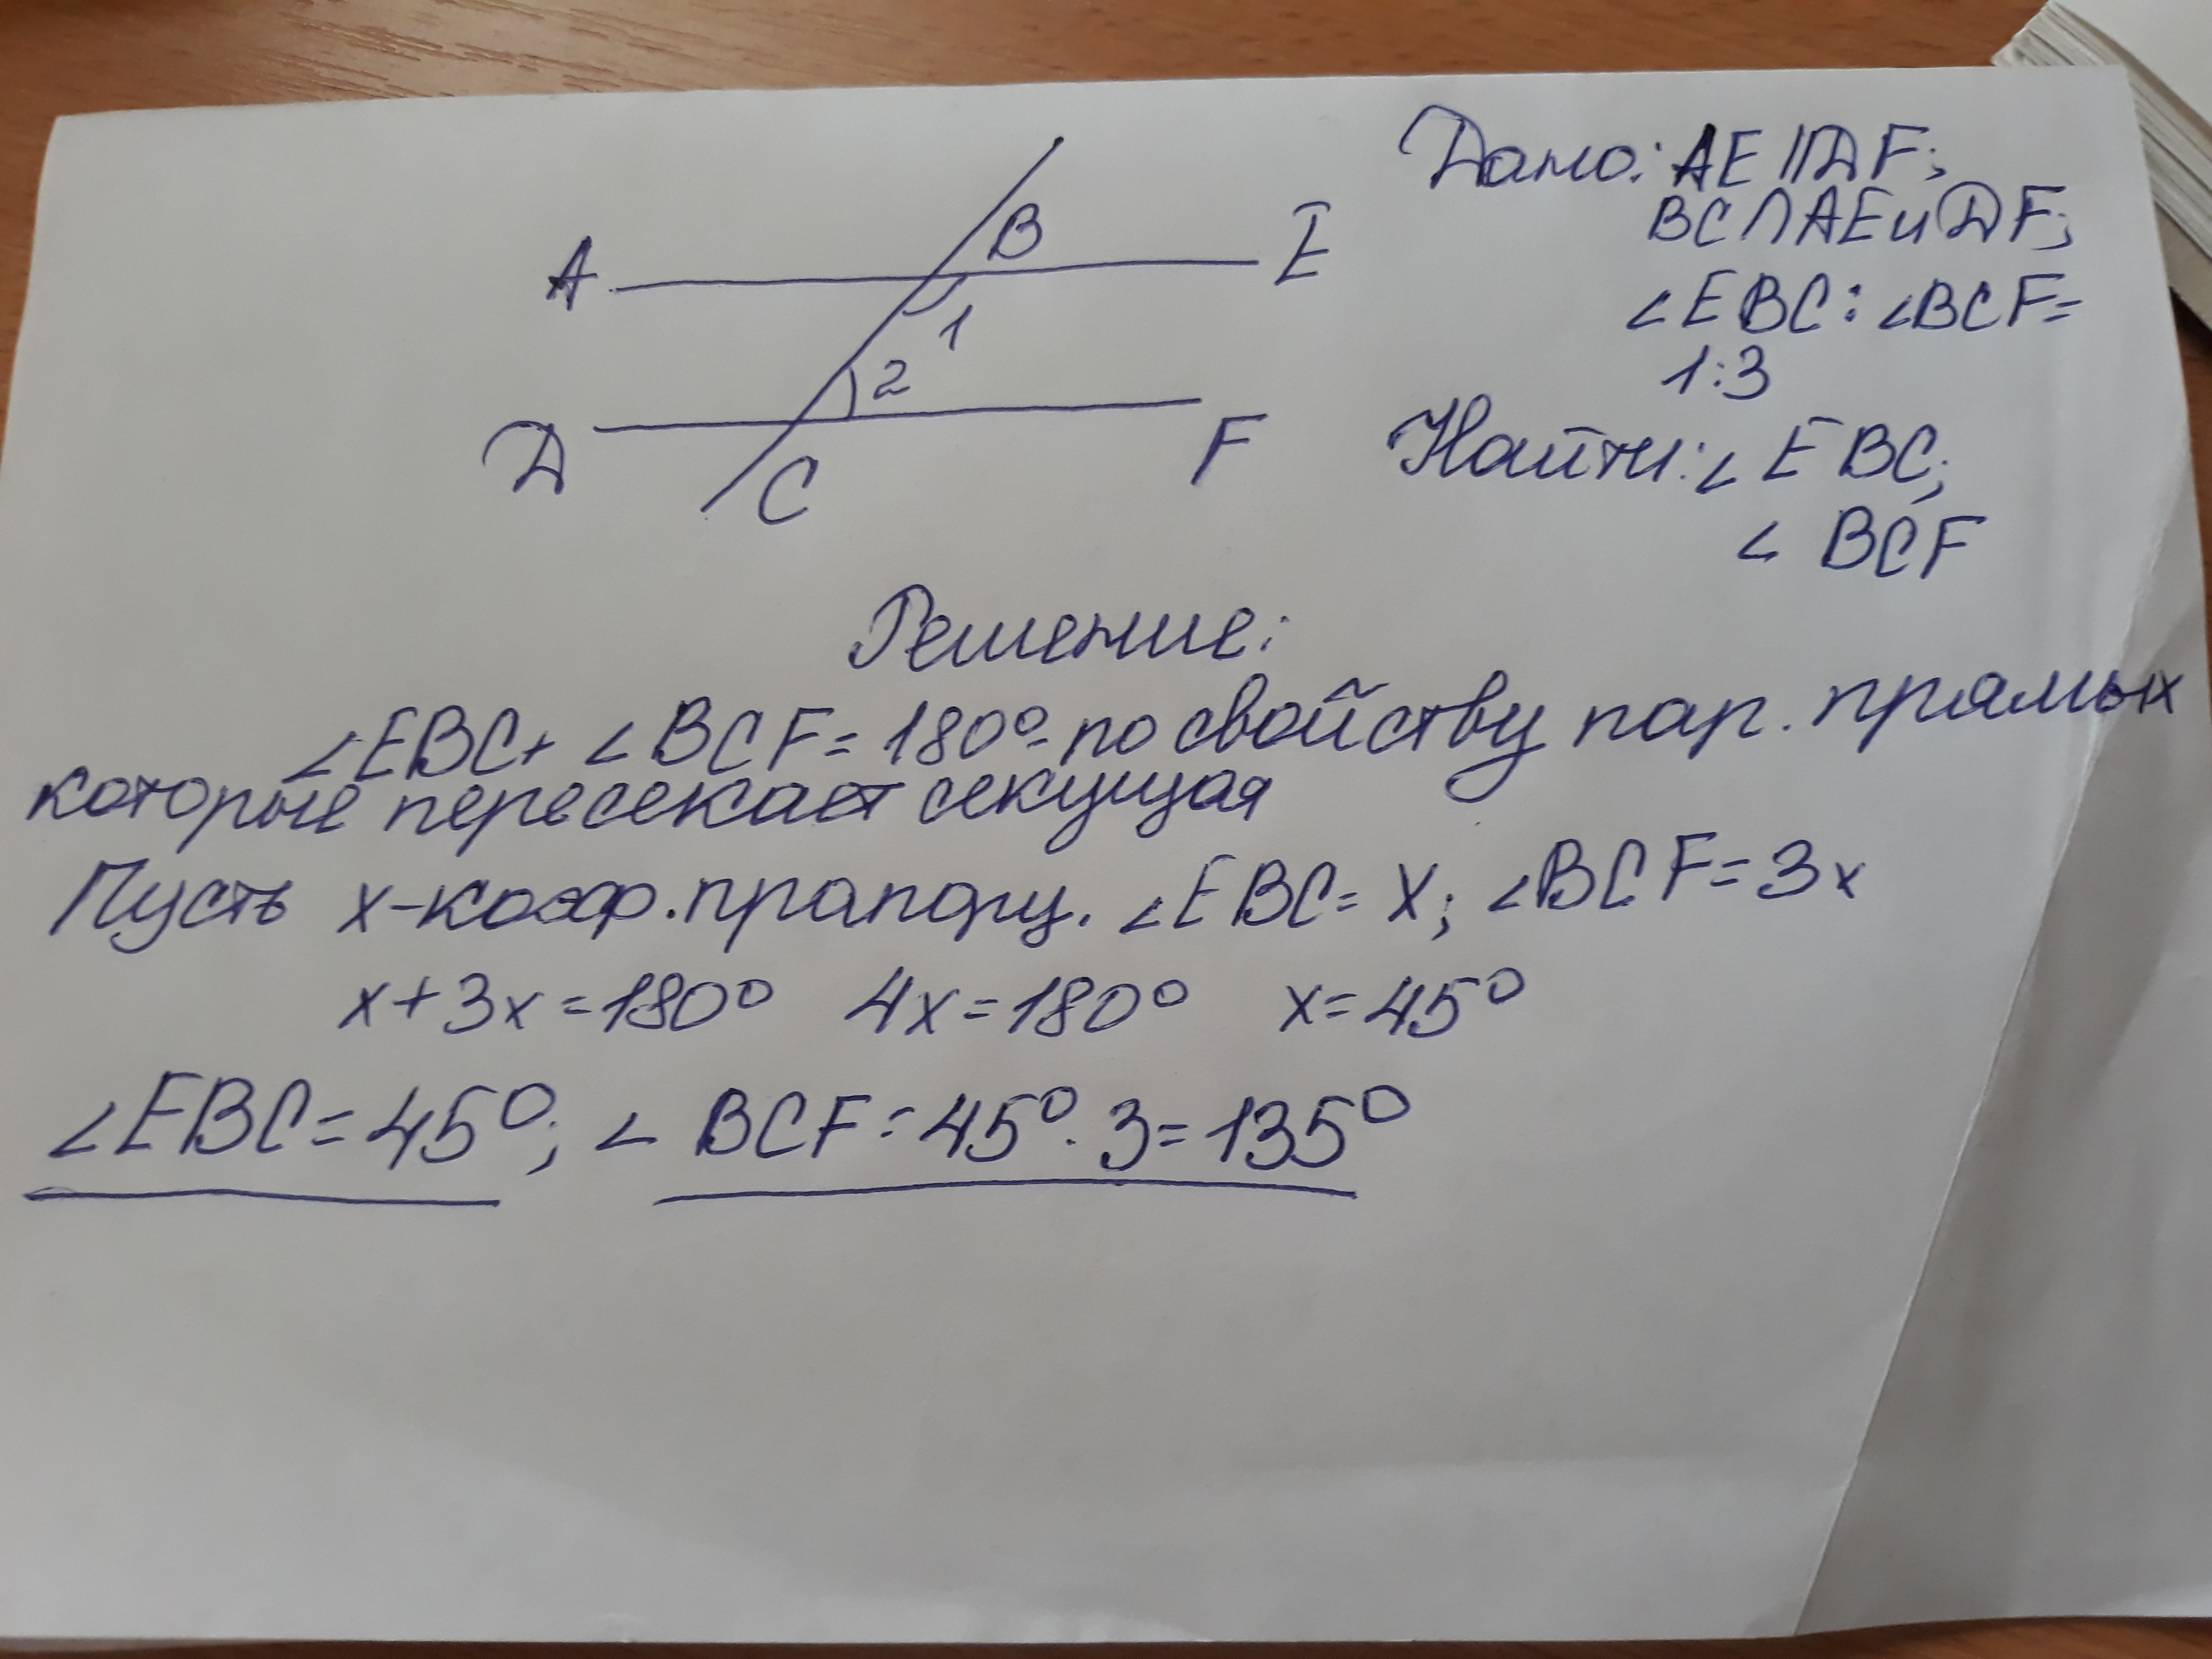 Дано: AE||DF;
BC∩AE и DF;
∠EBC:∠BCF=
1:3
Найти: ∠EBC;
∠BCF
A
B
E
1
2
D
C
F
Решение:
∠EBC+∠BCF=180°-по свойству пар. прямых
которые пересекает секущая
Пусть x-коэф.прапорц. ∠EBC=x; ∠BCF=3x
x+3x=180° 4x=180° x=45°
∠EBC=45°; ∠BCF=45°·3=135°